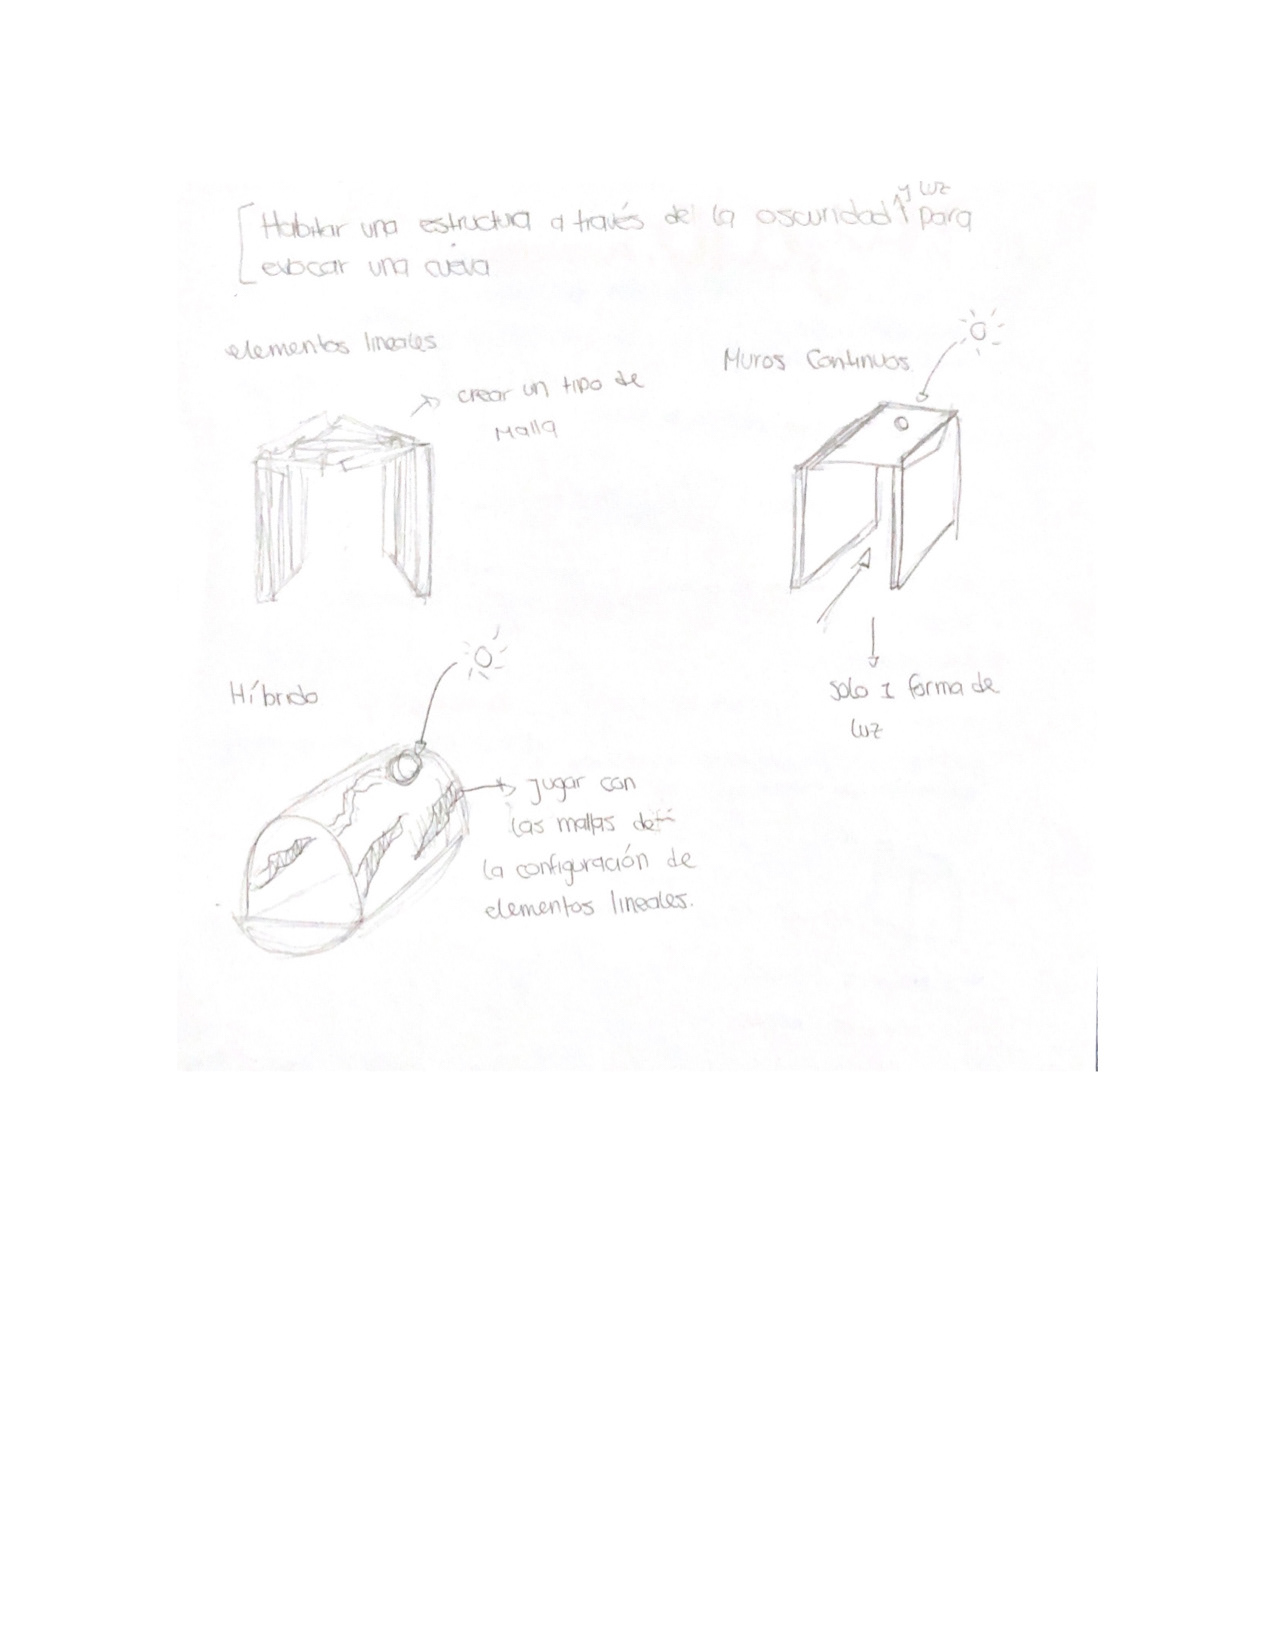 y luz
Habitar una estructura a través de la oscuridad para
evocar una cueva
elementos lineales
crear un tipo de
Malla
Muros Continuos
solo 1 forma de
luz
Híbrido
jugar con
las mallas de
la configuración de
elementos lineales.